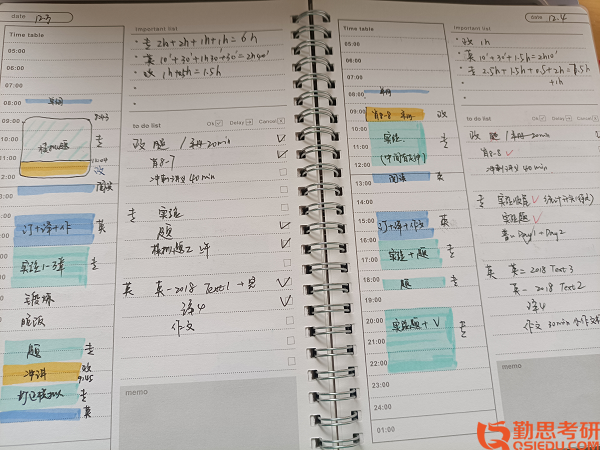 date 12.3
Time table
important list
专 2h+2h+1h+1h=6h
英 10'+30'+1h30'+30'=2h40'
政 1h+0.5h=1.5h
05:00
06:00
07:00
08:00
09:00
10:00
11:00
12:00
13:00
14:00
15:00
16:00
17:00
18:00
19:00
20:00
21:00
22:00
23:00
24:00
01:00
单词
模拟题
专
政
阅读
英
汀+译+作
实验1-3章
专
晚饭
题
专
冲讲
政
9:45
专
英
to do list
Ok
Delay
Cancel
政 题
20min
肖8-7
冲刺讲义 40min
专 实验
题
模拟题2
英 英一2018 Text1
译4
作文
memo
date 12.4
Time table
important list
政 1h
英 10'+30'+1.5h=2h10'
专 2.5h+1.5h+0.5+2h=7.5h
+1h
05:00
06:00
07:00
08:00
09:00
10:00
11:00
12:00
13:00
14:00
15:00
16:00
17:00
18:00
19:00
20:00
21:00
22:00
23:00
24:00
01:00
单词
肖8-8
政
实验
专
阅读
英
汀+译+作
英
实验+题
专
题
专
实验题+V
专
to do list
Ok
Delay
Cancel
政 题
20min
肖8-8
冲刺讲义 40min
专 实验
实验题
普一Day1+Day2
英 英二2018 Text3
英一2018 Text2
译4
作文 30min 小作文
memo
勤思考研
QSIEDU.COM